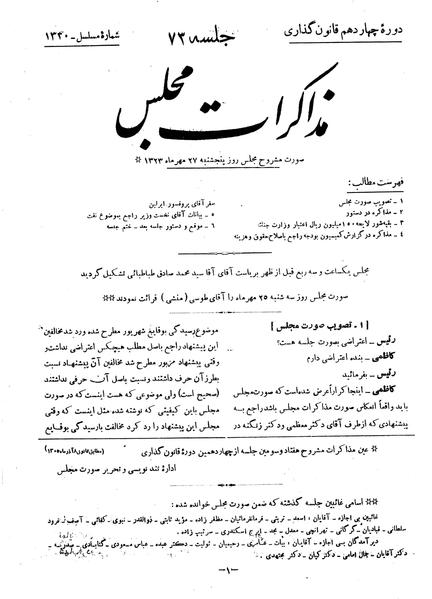 دورهٔ چهاردهم قانون گذاری
جلسه ۷۳
شمارهٔ مسلسل - ۱۳۴۰
مذاکرات مجلس
صورت مشروح مجلس روز پنجشنبه ۲۷ مهرماه ۱۳۲۳
فهرست مطالب:
۱ - تصویب صورت مجلس
۲ - مذاکره در دستور
۳ - بقیهٔ شور لایحه ۱۵۰ میلیون ریال اعتبار وزارت جنگ
۴ - مذاکره در گزارش کمیسیون بودجه راجع باصلاح حقوق و هزینه
سفر آقای پروفسور ابراین
۵ - بیانات آقای نخست وزیر راجع بموضوع نفت
۶ - موقع و دستور جلسه بعد - ختم جلسه
مجلس یکساعت و سه ربع قبل از ظهر بریاست آقای آقا سید محمد صادق طباطبائی تشکیل گردید
صورت مجلس روز سه شنبه ۲۵ مهرماه را آقای طوسی (منشی) قرائت نمودند
[ ۱ - تصویب صورت مجلس ]
رئیس - اعتراضی بصورت جلسه هست؟
کاظمی - بنده اعتراضی دارم
رئیس - بفرمائید
کاظمی - اینجا کراراً عرض شده است که صورت مجلس
باید واقعاً انعکاس صورت مذاکرات مجلس باشد راجع به
پیشنهادی که از طرف آقای دکتر معظمی و دکتر زنگنه در
موضوع رسیدگی بوقایع شهریور مطرح شده ورد شد مخالفین
این پیشنهاد راجع باصل مطلب هیچکس اعتراضی نداشت و
وقتی پیشنهاد مزبور مطرح شد مخالفین آن پیشنهاد نسبت
بطرز آن حرف داشتند ونسبت باصل آن حرفی نداشتند
(صحیح است) ولی موضوعی که هست اینست که در صورت
مجلس باین کیفیتی که نوشته شده مثل اینست که وقتی
مجلس این پیشنهاد را رد کرد مخالفت بارسیدگی بوقایع
عین مذاکرات مشروح هفتاد وسومین جلسه از چهاردهمین دورهٔ قانون گذاری
اداره تند نویسی و تحریر صورت مجلس
اسامی غائبین جلسه گذشته که ضمن صورت مجلس خوانده شده:
غائبین بی اجازه - آقایان: اسعد - تربتی - فرمانفرمائیان - مظفر زاده - مؤید ثابتی - ذوالقدر - نبوی - کفائی - آصف - فرود
سلطانی - قبادیان - گرگانی - تهرانچی - معدل - مجد - ایرج اسکندری - سرتیپ زاده
دیر آمدگان بی اجازه - آقایان: بیات - رحیمیان - تولیت - دکتر عبده - عباس مسعودی - گنابادی -
دکتر آقایان - جلال امامی - دکتر کیان - دکتر مجتهدی
-۱-